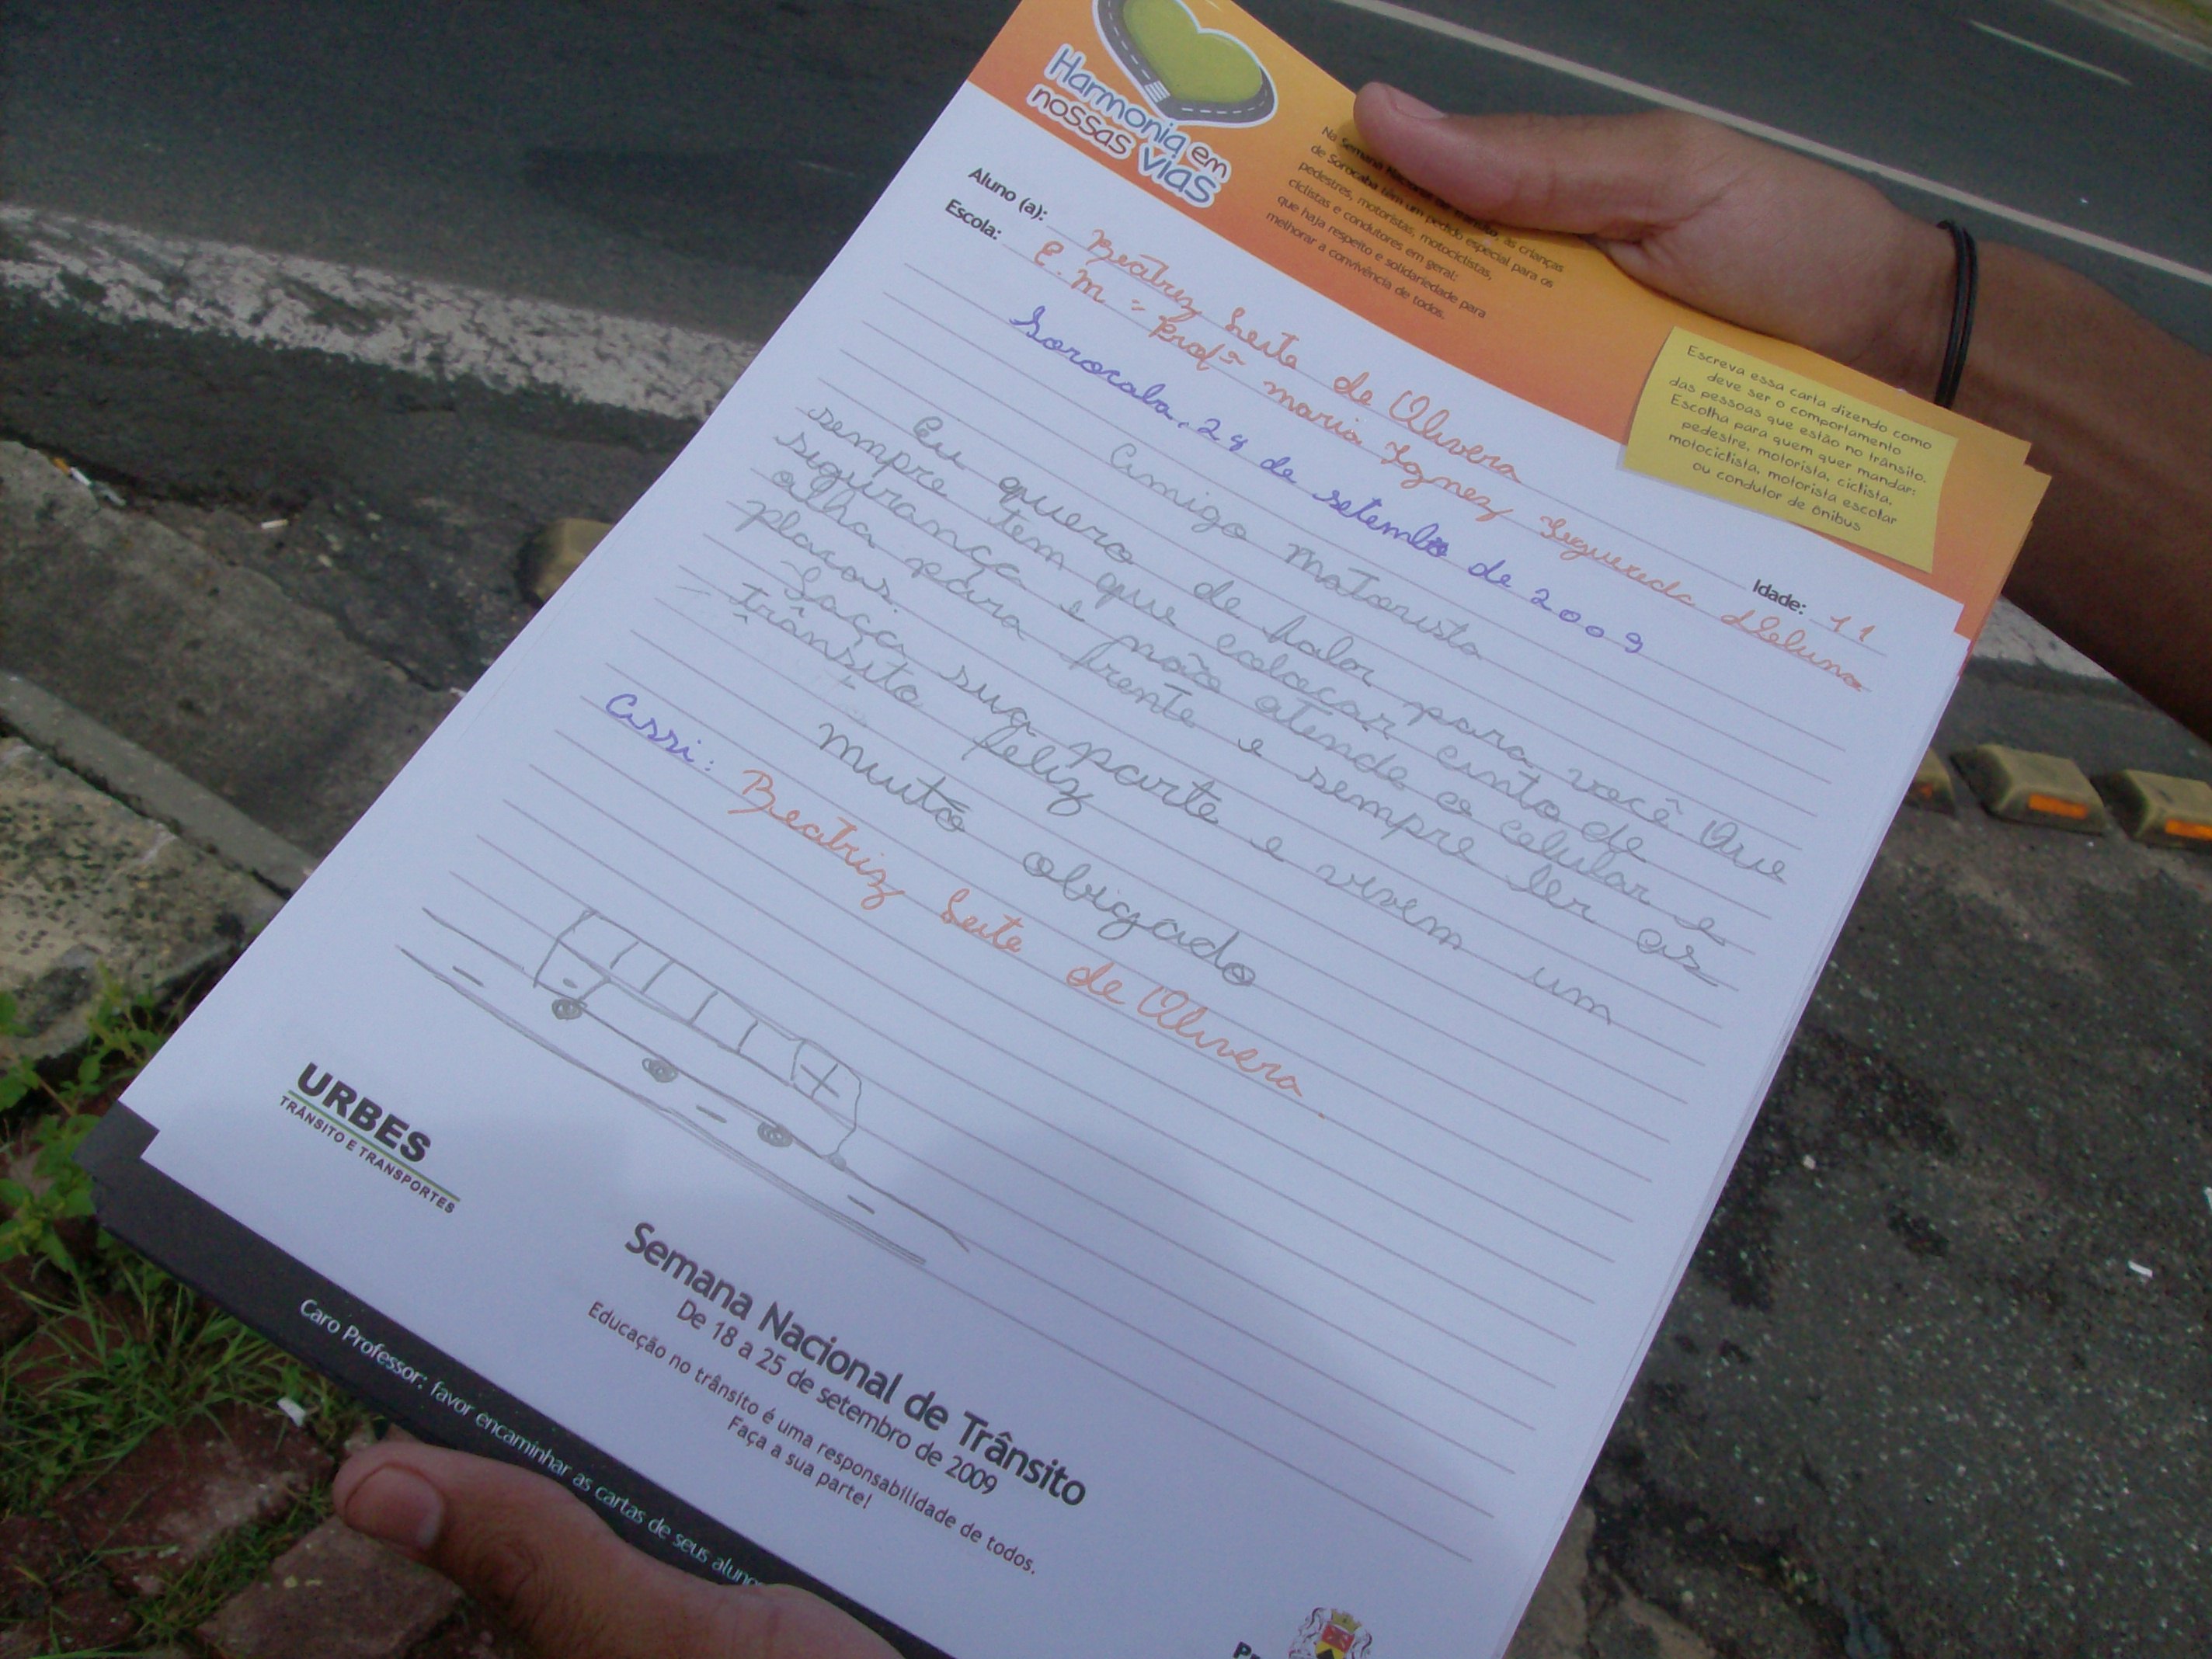 Harmonia em
nossas vias
Na Semana Nacional de Trânsito, as crianças
de Sorocaba têm um pedido especial para os
pedestres, motoristas, motociclistas,
ciclistas e condutores em geral:
que haja respeito e solidariedade para
melhorar a convivência de todos.
Escreva essa carta dizendo como
deve ser o comportamento
das pessoas que estão no trânsito.
Escolha para quem quer mandar:
pedestre, motorista, ciclista,
motociclista, motorista escolar
ou condutor de ônibus
Aluno (a): Beatriz Leite de Olivera
Idade: 11
Escola: E.M = Profª maria Ignez
Sorocaba, 28 de setembro de 2009
Amigo motorista
Eu quero de falar para você Que
sempre tem que colocar cinto de
sigurança e não atende o celular e
olha para frente e sempre ler as
placas.
Faça sua parte e vivem um
trânsito feliz
muito obigado
Assi: Beatriz Leite de Olivera.
URBES
TRÂNSITO E TRANSPORTES
Semana Nacional de Trânsito
De 18 a 25 de setembro de 2009
Educação no trânsito é uma responsabilidade de todos.
Faça a sua parte!
Caro Professor: favor encaminhar as cartas de seus